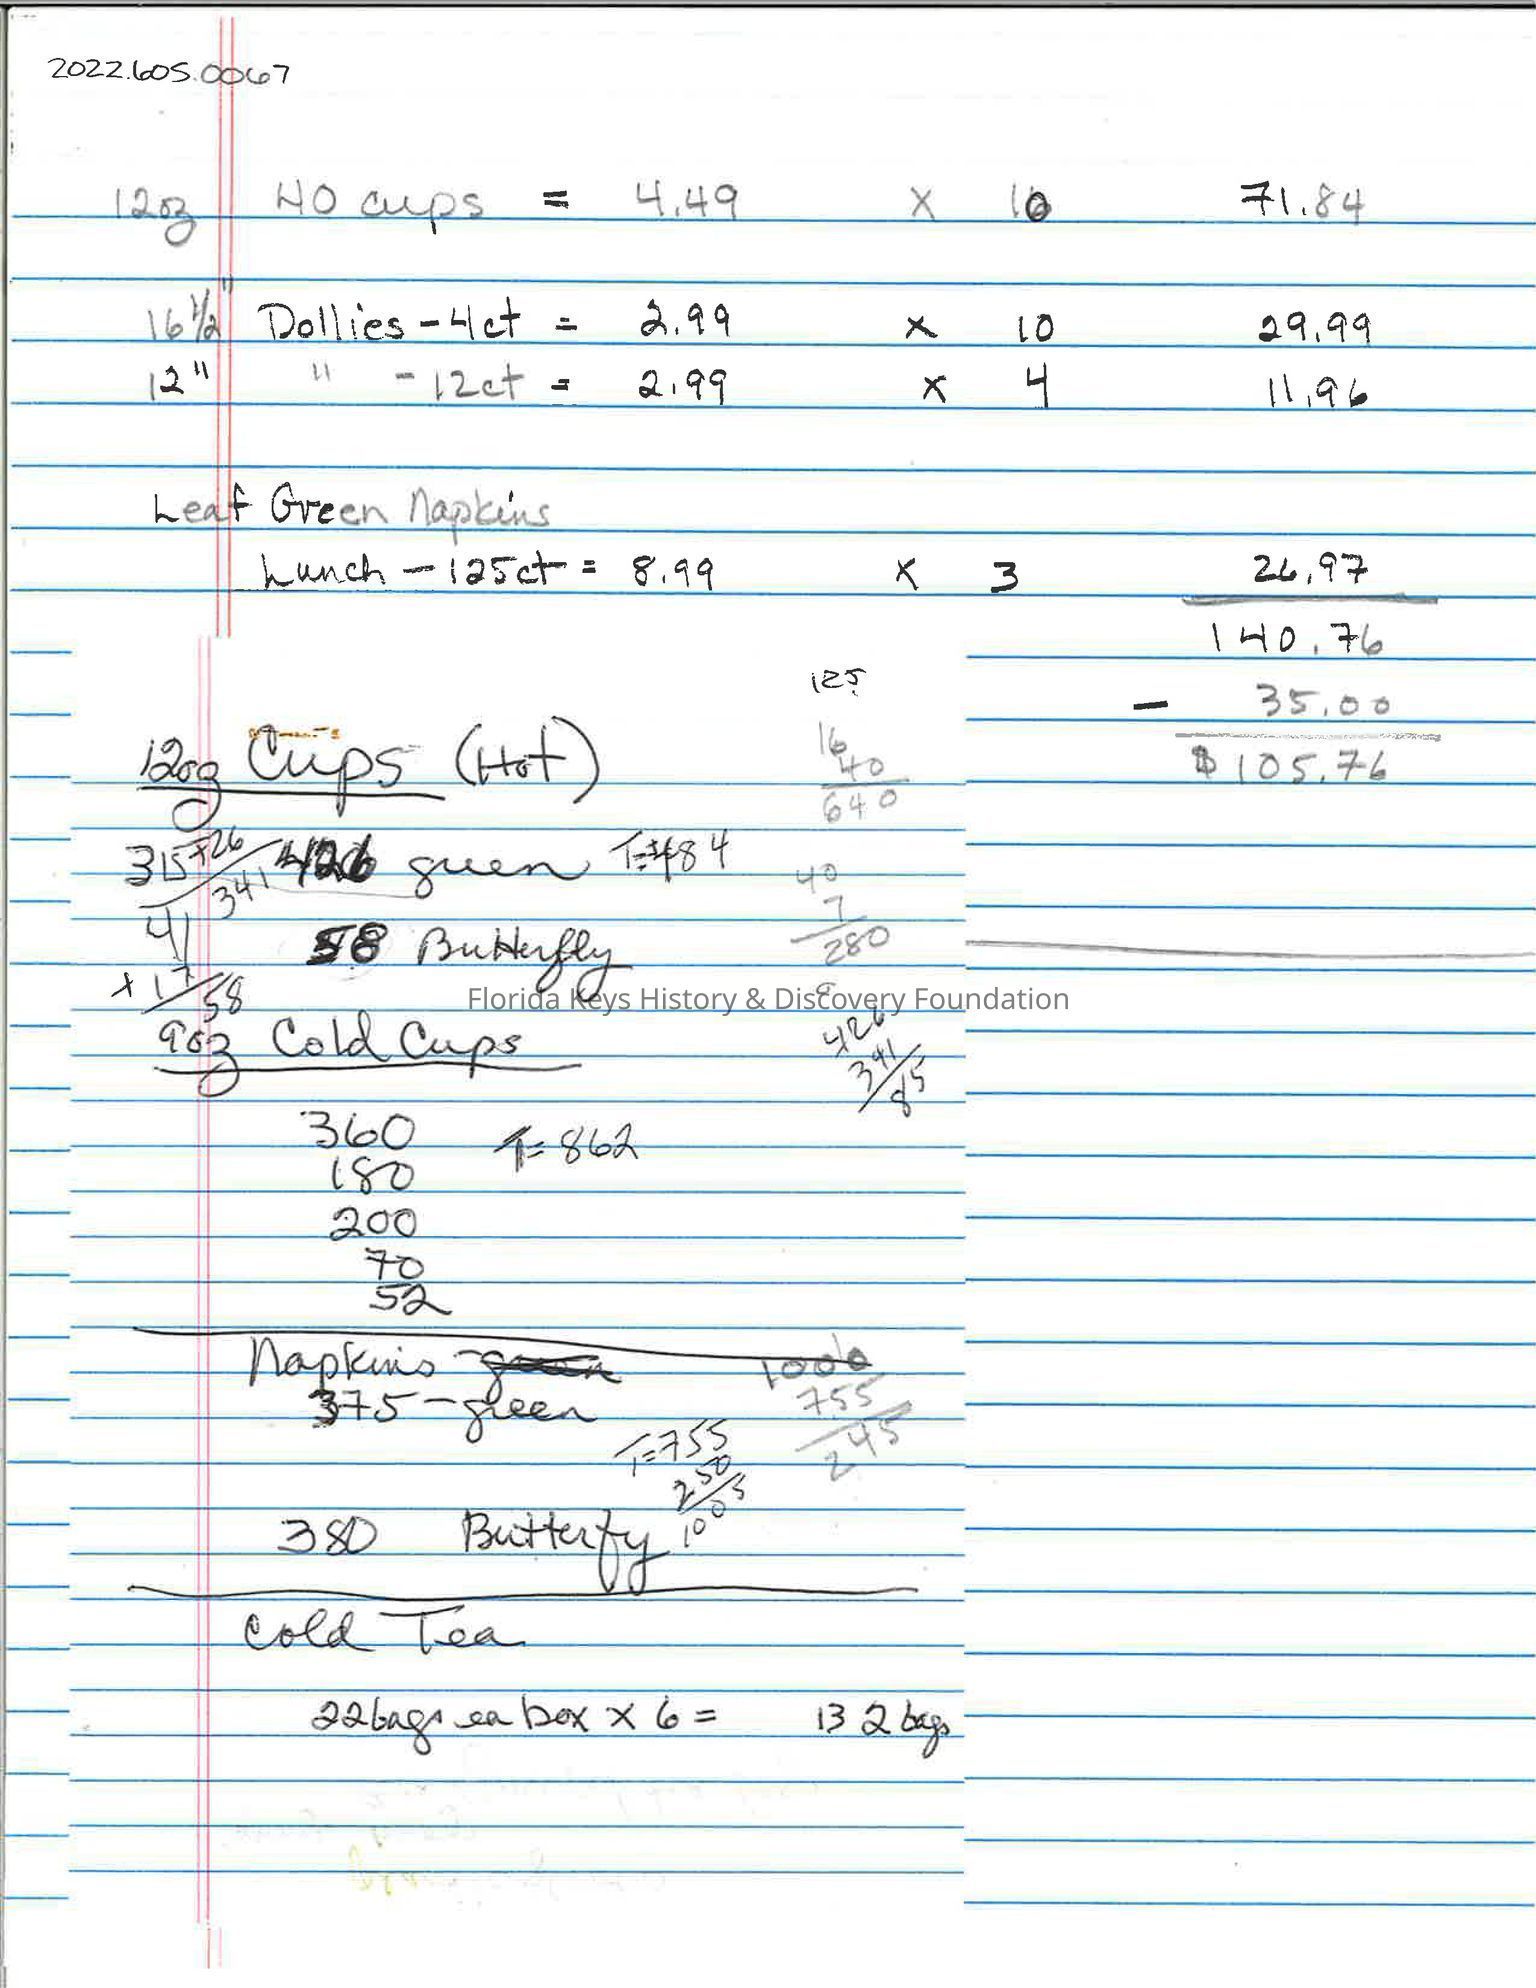 2022.605.0067
12oz 40 cups = 4.49 x 16 71.84
16 1/2" Dollies - 4ct = 2.99 x 10 29.99
12" " - 12ct = 2.99 x 4 11.96
Leaf Green Napkins
Lunch - 125ct = 8.99 x 3 26.97
140.76
- 35.00
$105.76
125
16
40
640
12oz Cups (Hot)
315 +26 341 426 green T=484
40
7
280
41 58 Butterfly
+ 17 58
Florida Keys History & Discovery Foundation
9oz Cold Cups
426
341
85
360 T=862
180
200
70
52
Napkins - green
375 - green
1000
755
245
T=755
250
1005
380 Butterfy
Cold Tea
22 bags ea box x 6 = 132 bags